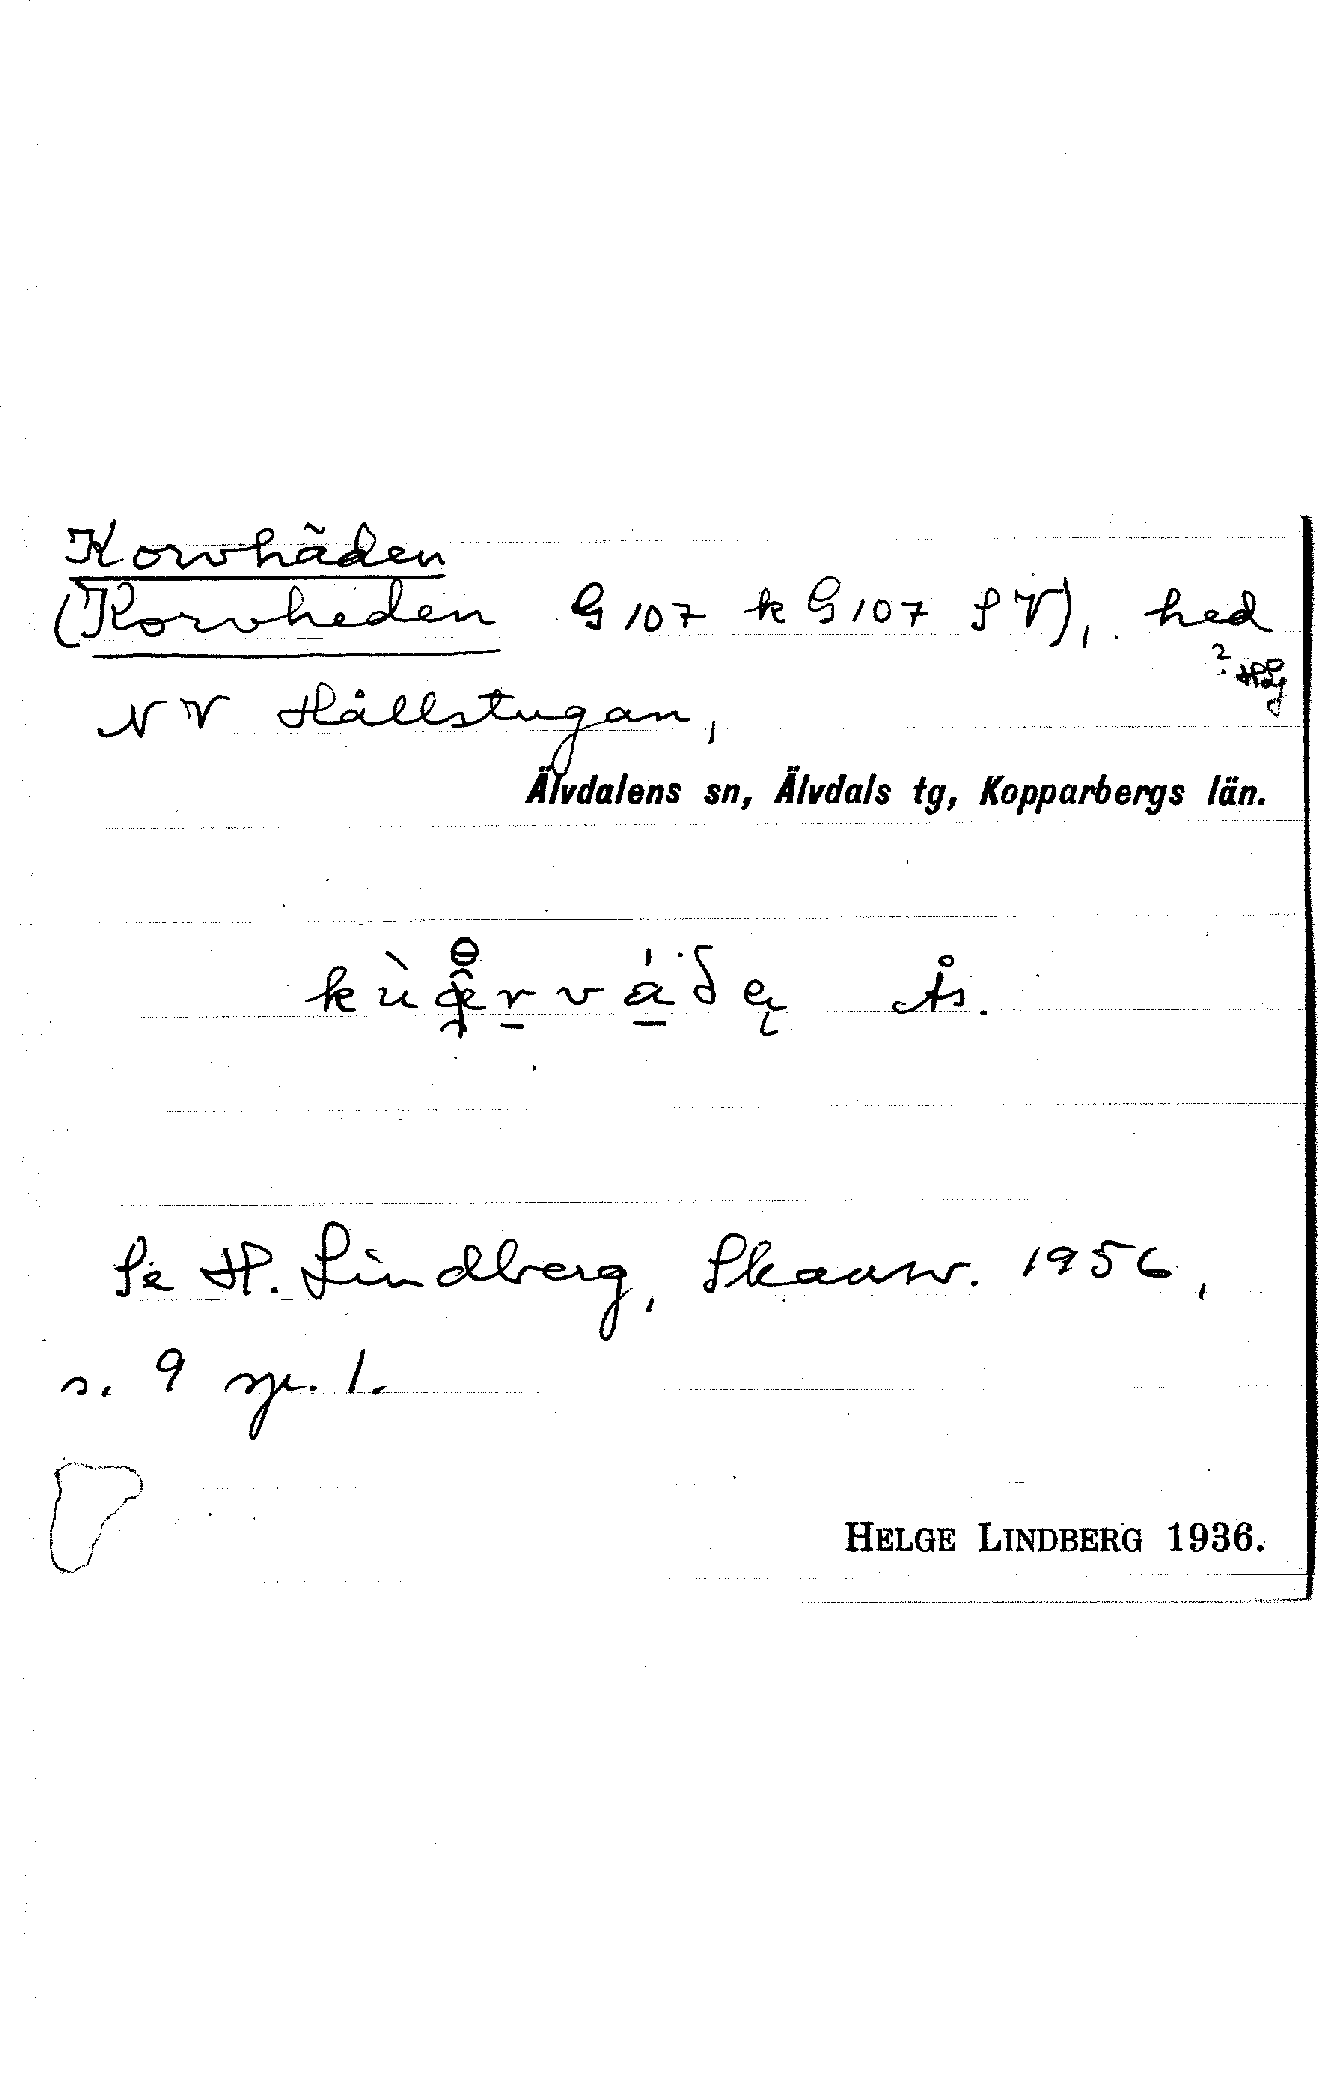 Korvhäden
(Korvheden G107 k G107 SV), hed
NV Hållstugan,
Älvdalens sn, Älvdals tg, Kopparbergs län.
Ås.
Se H. Lindberg, Skansv. 1956,
s. 9 sp. 1.
HELGE LINDBERG 1936.